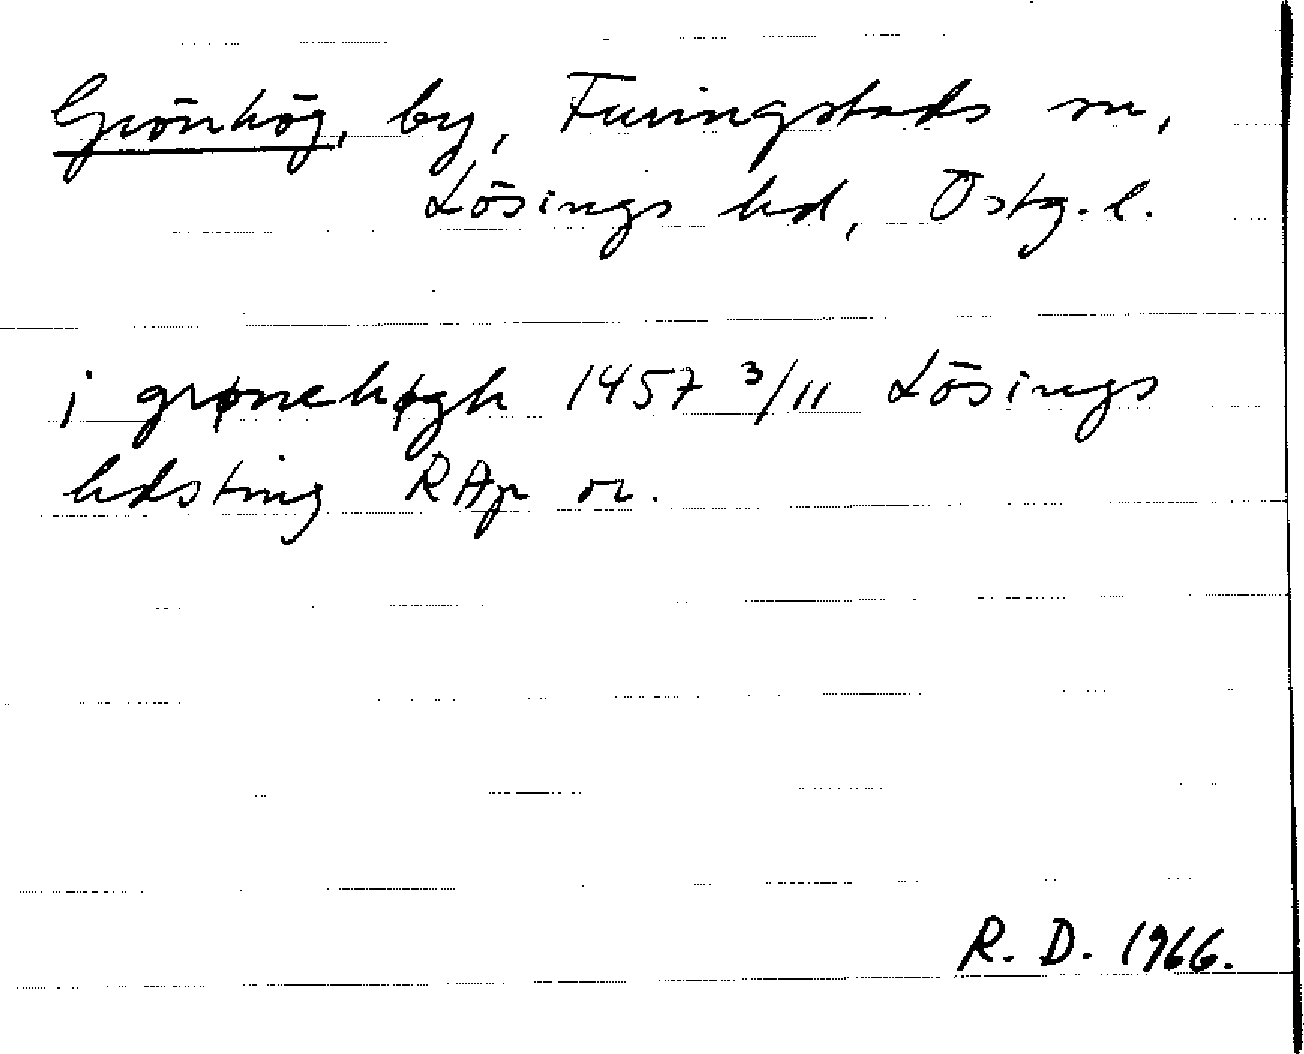 Grönhög, by, Furingstads sn,
Lösings hd, Östg. l.
i grønehøgh 1457 3/11 Lösings
hdsting RAp or.
R. D. 1966.